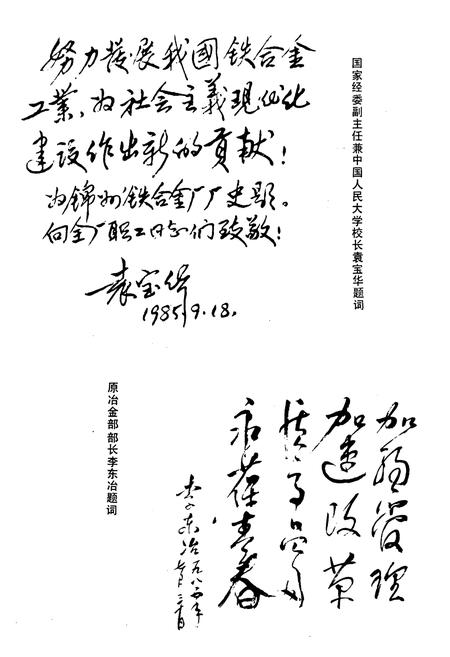 努力发展我國铁合金
工業，为社会主義现代化
建设作出新的貢献！
为锦州铁合金厂厂史题。
向全厂职工同志们致敬！
袁宝华
1985.9.18.
国家经委副主任兼中国人民大学校长袁宝华题词
加强管理
加速改革
永葆青春
李东冶
原冶金部部长李东冶题词